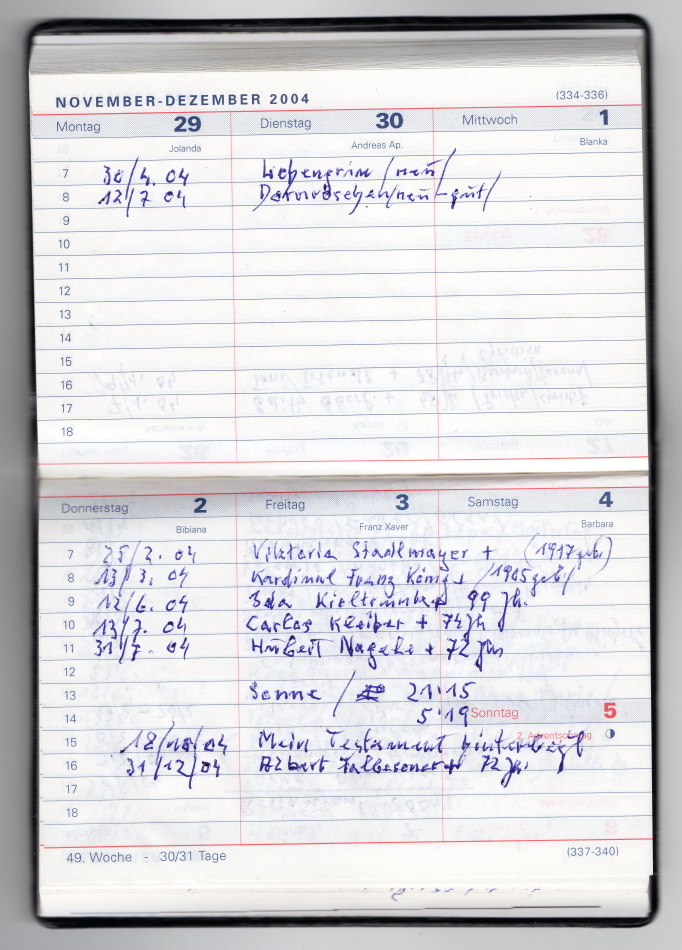 NOVEMBER-DEZEMBER 2004 (334-336)
Montag 29 Dienstag 30 Mittwoch 1
Jolanda Andreas Ap. Blanka
7 30/4. 04 /neu/
8 12/7 04 Dornröschen/neu-gut/
9
10
11
12
13
14
15
16
17
18
Donnerstag 2 Freitag 3 Samstag 4
Bibiana Franz Xaver Barbara
7 25/2. 04 Viktoria Stadlmayer + (1917 geb.)
8 13/3. 04 Kardinal Franz König + /1905 geb/
9 12/6. 04 Ida 99 Jh.
10 13/7. 04 Carlos Kleiber + 74 Jh
11 31/7. 04 Hubert + 72 Jh
12
13 Sonne / 21'15
14 5'19 Sonntag 5
2. Adventsonntag
15 18/10/04 Mein Testament hinterlegt
16 31/12/04 Albert + 72 Jh.
17
18
49. Woche - 30/31 Tage (337-340)